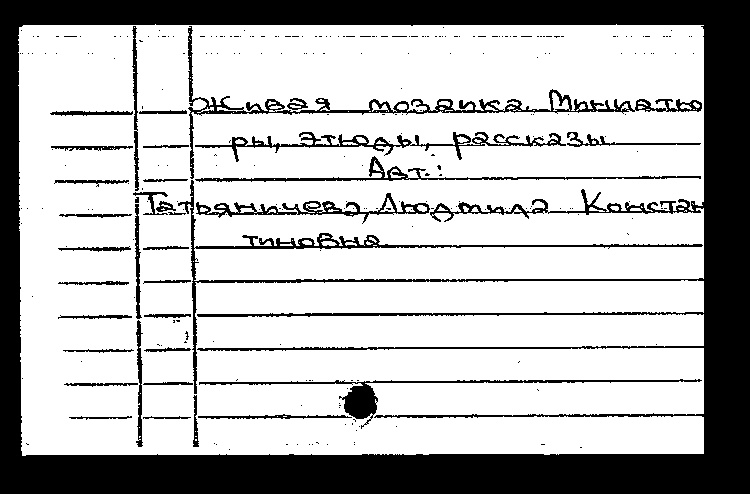 Живая мозаика. Миниатю
ры, этюды, рассказы
Авт.:
Татьяничева, Людмила Констан
тиновна